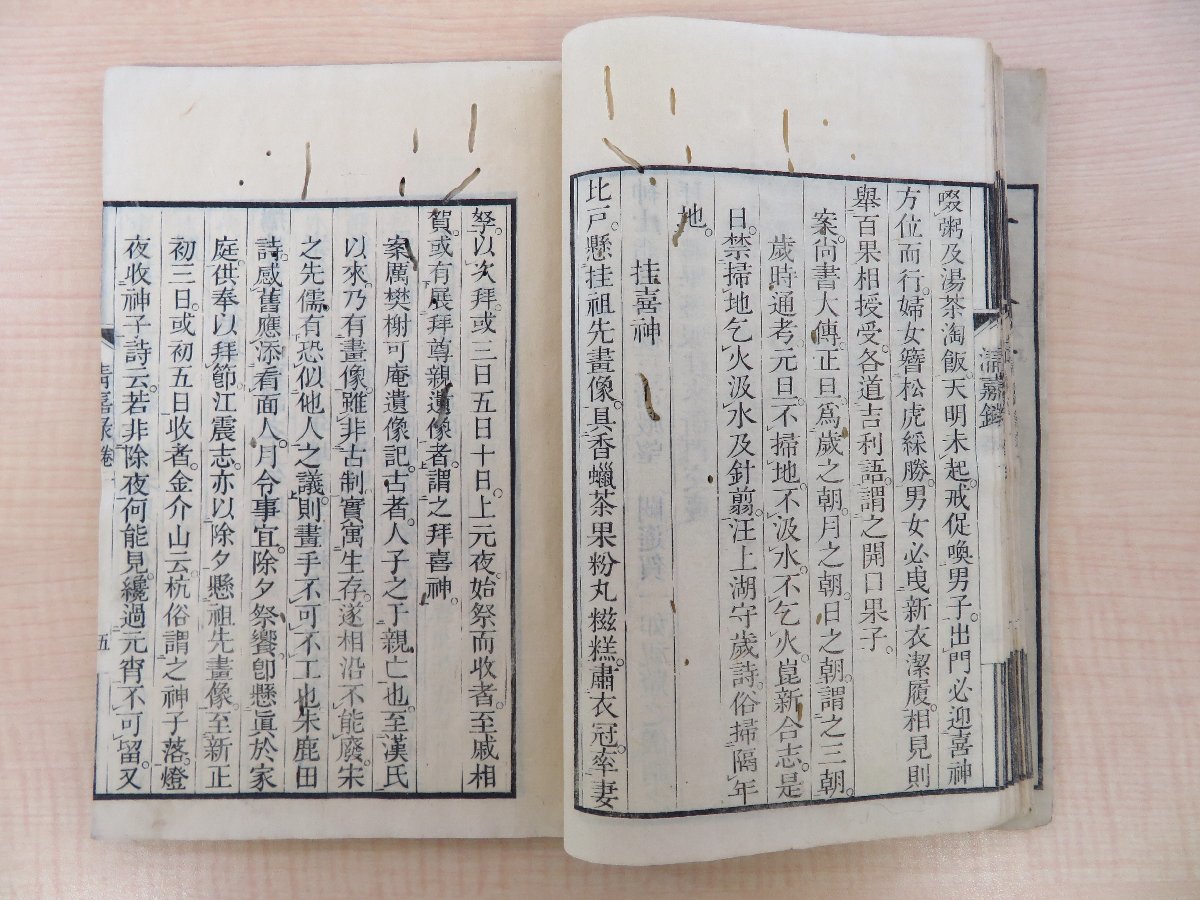 啜粥及湯茶淘飯。天明未起。戒促喚男子。出門必迎喜神
方位而行。婦女簪松虎綵勝。男女必曳新衣潔履。相見則
舉百果相授受。各道吉利語。謂之開口果子。
案。尚書大傳。正旦爲歲之朝。月之朝。日之朝。謂之三朝。
歲時通考。元旦。不掃地。不汲水。不乞火。崑新合志。是
日。禁掃地乞火汲水及針翦。汪上湖守歲詩。俗掃隔年
地。
挂喜神
比戶。懸挂祖先畫像。具香蠟茶果粉丸糍糕。肅衣冠。率妻
孥。以次拜。或三日五日十日。上元夜。始祭而收者。至戚相
賀。或有展拜尊親遺像者。謂之拜喜神。
案。厲樊榭可庵遺像記。古者。人子之于親亡也。至漢氏
以來。乃有畫像。雖非古制。實寓生存。遂相沿不能廢。宋
之先儒。有恐似他人之議。則畫手不可不工也。朱鹿田
詩。感舊應添看面人。月令事宜。除夕祭饗。卽懸眞於家
庭。供奉以拜節。江震志。亦以除夕懸祖先畫像。至新正
初三日。或初五日收者。金介山云。杭俗謂之神子。落燈
夜收神子詩云。若非除夜何能見。纔過元宵不可留。又
清嘉錄
清嘉錄卷一
五